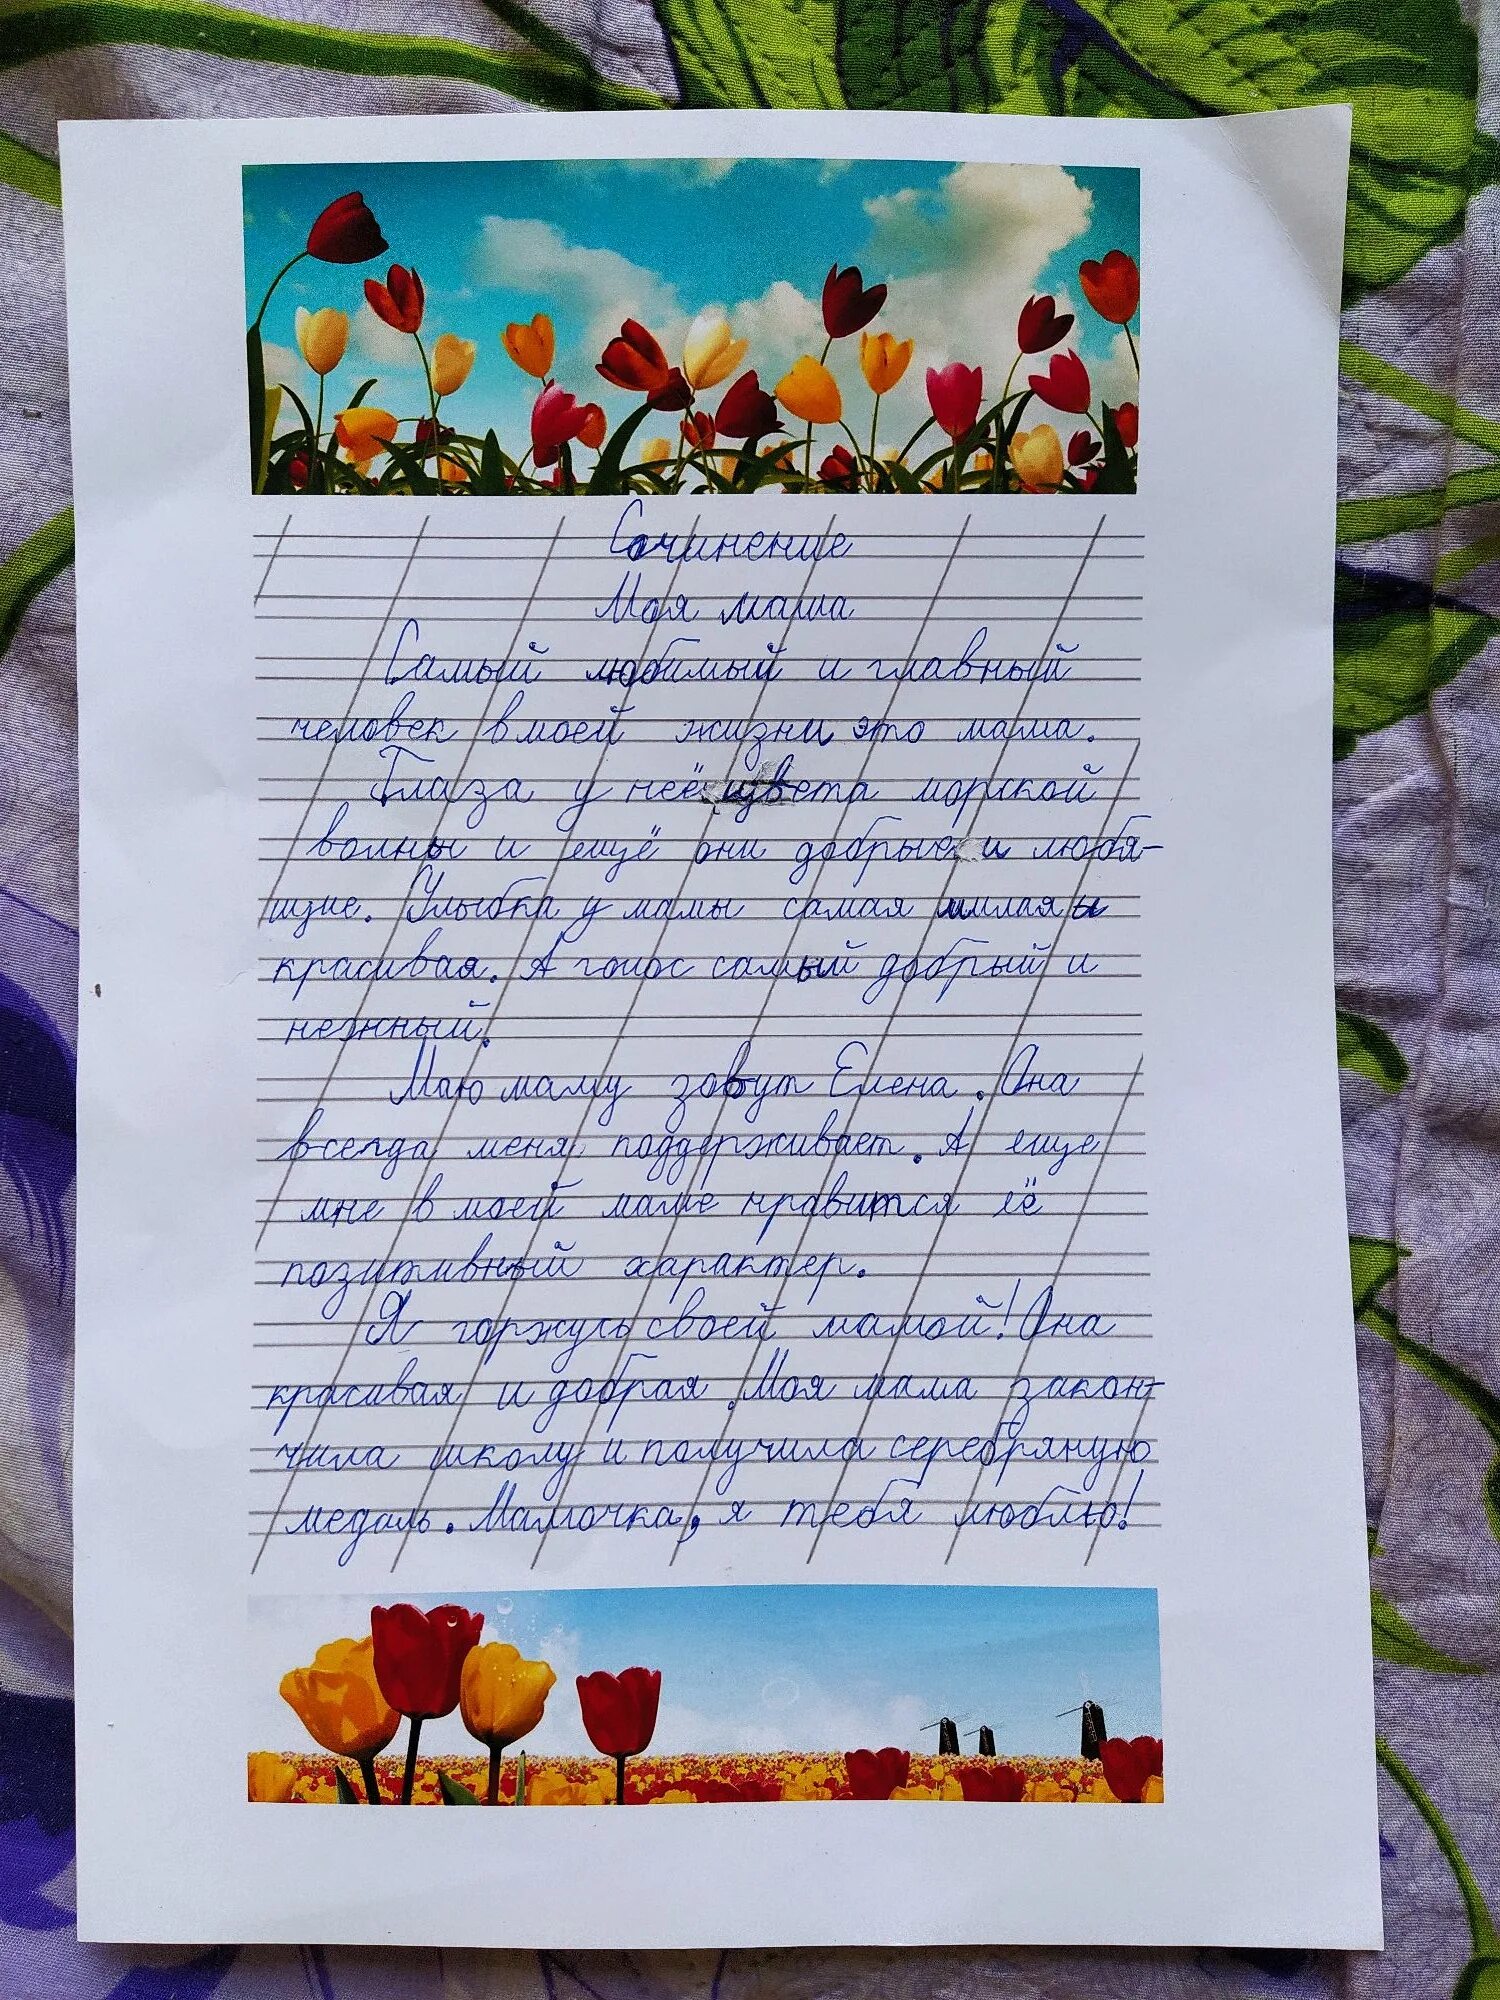 Сочинение
Моя мама
Самый любимый и главный
человек в моей жизни это мама.
Глаза у неё цвета морской
волны и ещё они добрые и любя-
щие. Улыбка у мамы самая милая и
красивая. А голос самый добрый и
нежный.
Маю маму зовут Елена. Она
всегда меня поддерживает. А еще
мне в моей маме нравится её
позитивный характер.
Я горжусь своей мамой! Она
красивая и добрая. Моя мама закон-
чила школу и получила серебряную
медаль. Мамочка, я тебя люблю!